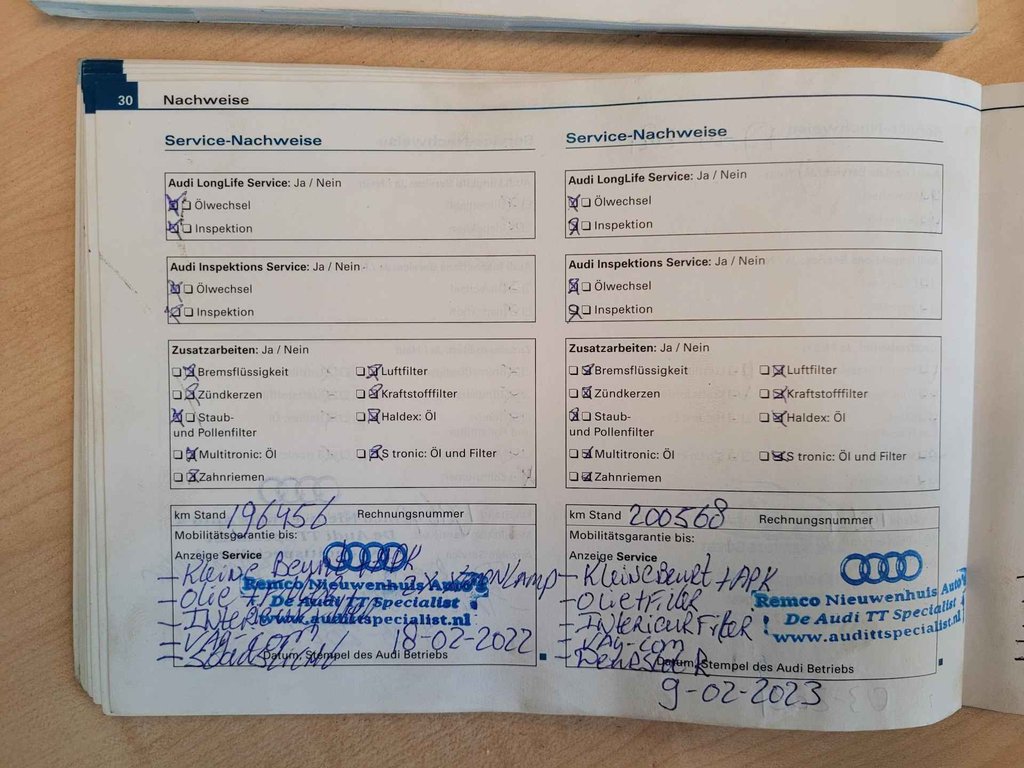 30 Nachweise
Service-Nachweise
Audi LongLife Service: Ja / Nein
Ölwechsel
Inspektion
Audi Inspektions Service: Ja / Nein
Ölwechsel
Inspektion
Zusatzarbeiten: Ja / Nein
Bremsflüssigkeit Luftfilter
Zündkerzen Kraftstofffilter
Staub- Haldex: Öl
und Pollenfilter
Multitronic: Öl S tronic: Öl und Filter
Zahnriemen
km Stand 196456 Rechnungsnummer
Mobilitätsgarantie bis:
Anzeige Service
- Kleine Beurt + APK
Remco Nieuwenhuis Auto's
- Olie
De Audi TT Specialist
www.audittspecialist.nl
- VAG-com
18-02-2022
Datum, Stempel des Audi Betriebs
Service-Nachweise
Audi LongLife Service: Ja / Nein
Ölwechsel
Inspektion
Audi Inspektions Service: Ja / Nein
Ölwechsel
Inspektion
Zusatzarbeiten: Ja / Nein
Bremsflüssigkeit Luftfilter
Zündkerzen Kraftstofffilter
Staub- Haldex: Öl
und Pollenfilter
Multitronic: Öl S tronic: Öl und Filter
Zahnriemen
km Stand 200568 Rechnungsnummer
Mobilitätsgarantie bis:
Anzeige Service
- Kleine Beurt + APK
Remco Nieuwenhuis Auto's
- Olie + Filter
De Audi TT Specialist
- Interieur Filter
www.audittspecialist.nl
- VAG-com
Datum, Stempel des Audi Betriebs
9-02-2023